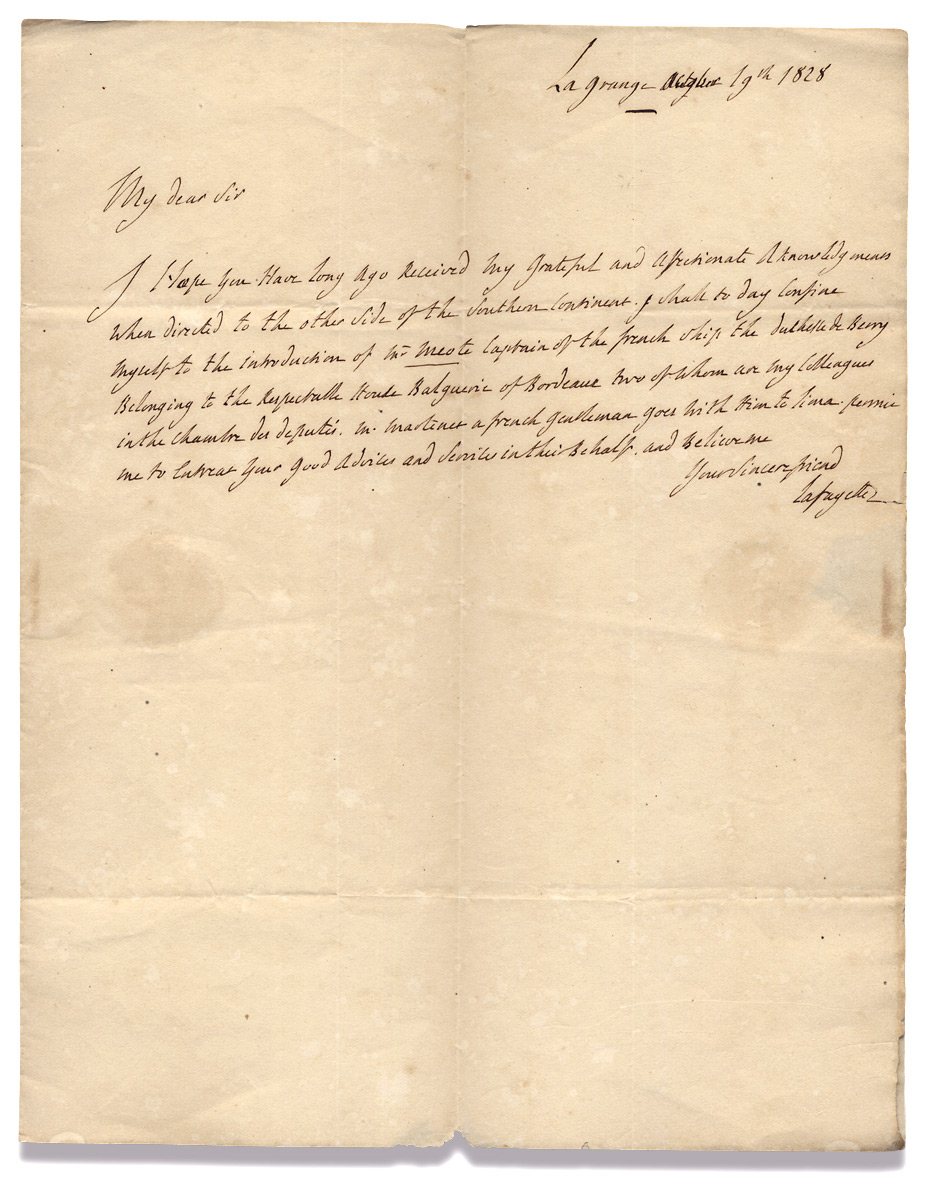 La grange October 19th 1828
My dear Sir
I Hope You Have long Ago Received My Grateful and Affectionate Aknowledgments
When directed to the other Side of the Southern Continent. I shall to day Confine
Myself to the introduction of Mr Captain of the french Ship the duchesse de Berry
Belonging to the Respectable House Balguerie of Bordeaux two of Whom are My Colleagues
in the Chambre des deputés. Mr. Martinet a french gentleman goes With Him to lima. permit
me to Entreat Your Good Advices and Services in their Behalf. and Believe me
Your Sincere friend
Lafayette